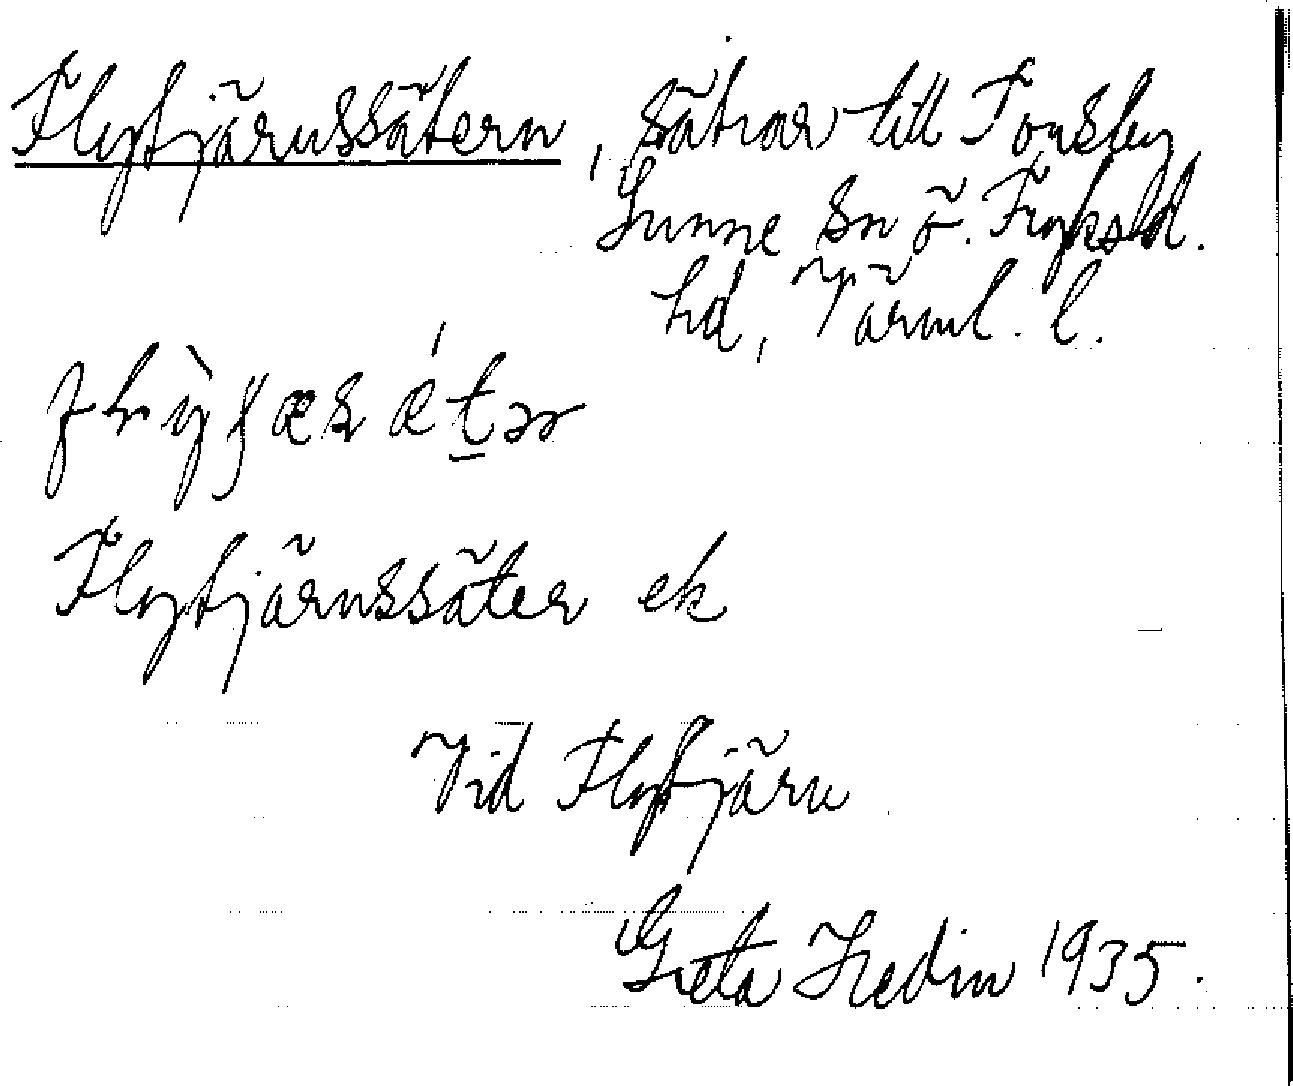 Flytjärnssätern, sätrar till Tonsby,
Sunne sn ö. Fryksd.
hd, Värml. l.
Flytjärnssäter ek
Vid Flytjärn
Greta Hedin 1935.